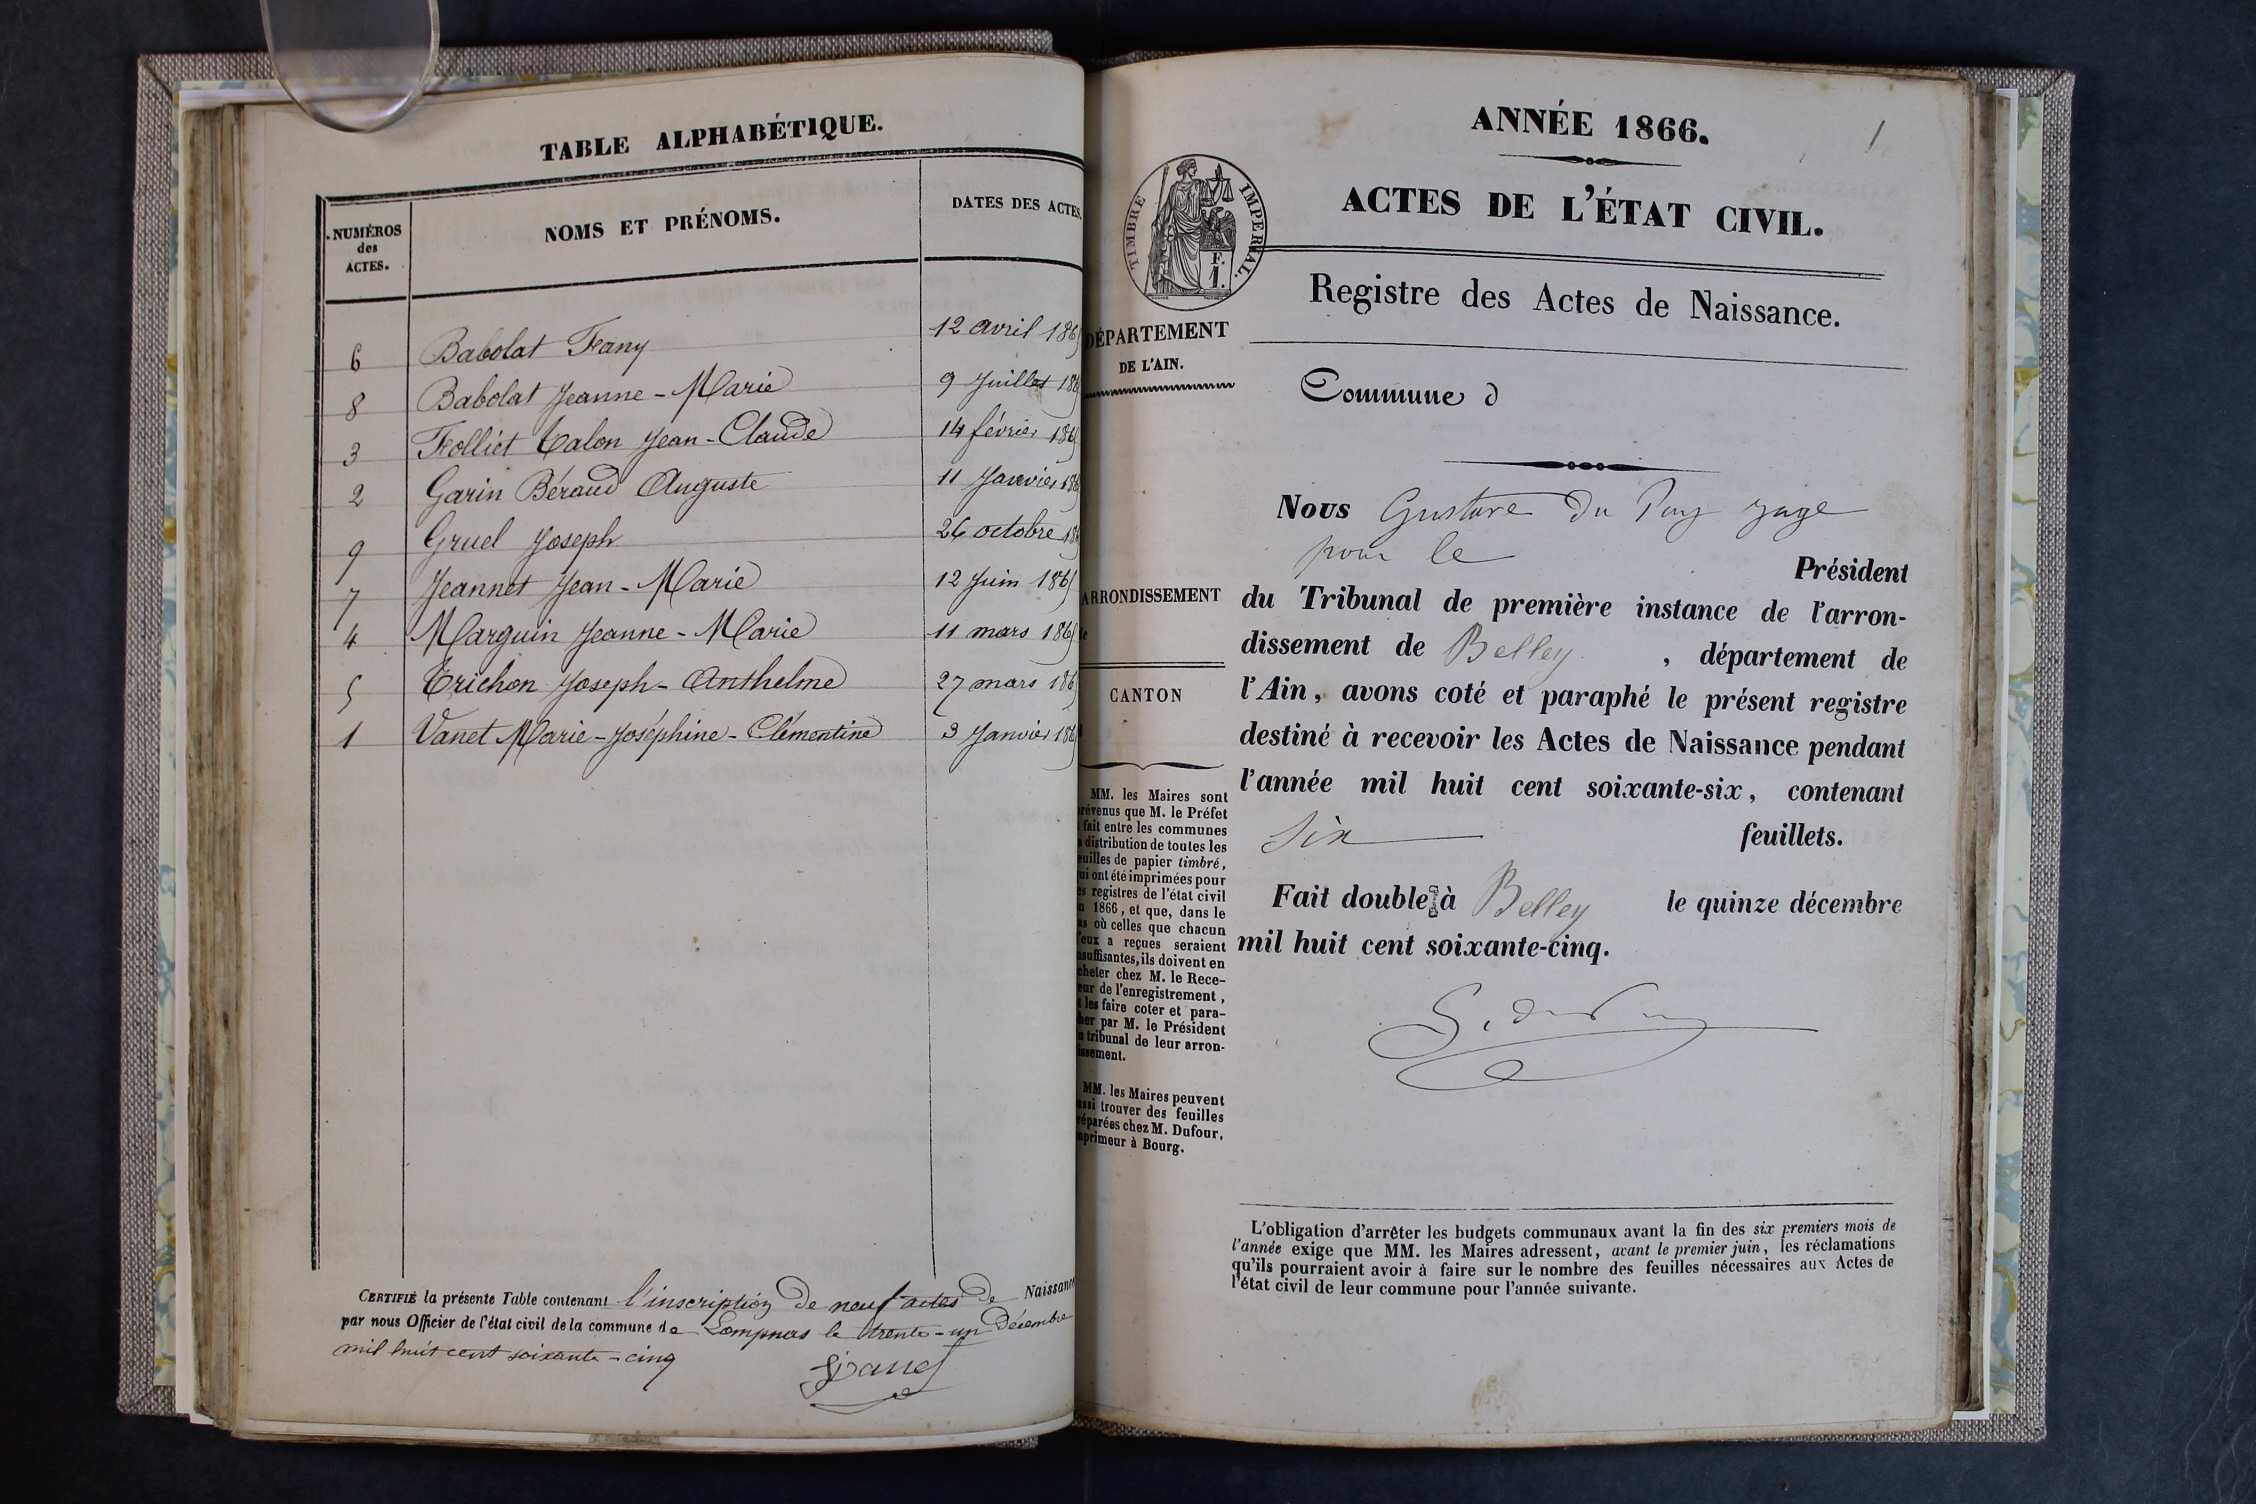 TABLE ALPHABÉTIQUE.
NUMÉROS des ACTES. NOMS ET PRÉNOMS. DATES DES ACTES.
6 Babolat Fany 12 avril 1865
8 Babolat Jeanne-Marie 9 Juillet 186
3 Folliet Talon Jean-Claude 14 février 1865
2 Garin Béraud Auguste 11 Janvier 186
9 Gruel Joseph 26 octobre 18
7 Jeannet Jean-Marie 12 Juin 1865
4 Marguin Jeanne-Marie 11 mars 1865
5 Trichon Joseph-Anthelme 27 mars 186
1 Vanet Marie-Joséphine-Clémentine 3 Janvier 186
CERTIFIÉ la présente Table contenant l'inscription de neuf actes de Naissance
par nous Officier de l'état civil de la commune de Lompnas le trente-un Décembre
mil huit cent soixante-cinq
ANNÉE 1866.
1
ACTES DE L'ÉTAT CIVIL.
TIMBRE IMPERIAL.
F.
1.
Registre des Actes de Naissance.
DÉPARTEMENT
DE L'AIN.
Commune d
ARRONDISSEMENT
de
CANTON
MM. les Maires sont
prévenus que M. le Préfet
fait entre les communes
distribution de toutes les
feuilles de papier timbré,
qui ont été imprimées pour
les registres de l'état civil
1866, et que, dans le
cas où celles que chacun
d'eux a reçues seraient
insuffisantes, ils doivent en
acheter chez M. le Rece-
veur de l'enregistrement,
les faire coter et para-
pher par M. le Président
du tribunal de leur arron-
dissement.
MM. les Maires peuvent
aussi trouver des feuilles
préparées chez M. Dufour,
imprimeur à Bourg.
Nous Gustave Du Puy juge
pour le Président
du Tribunal de première instance de l'arron-
dissement de Belley, département de
l'Ain, avons coté et paraphé le présent registre
destiné à recevoir les Actes de Naissance pendant
l'année mil huit cent soixante-six, contenant
six feuillets.
Fait double à Belley le quinze décembre
mil huit cent soixante-cinq.
L'obligation d'arrêter les budgets communaux avant la fin des six premiers mois de
l'année exige que MM. les Maires adressent, avant le premier juin, les réclamations
qu'ils pourraient avoir à faire sur le nombre des feuilles nécessaires aux Actes de
l'état civil de leur commune pour l'année suivante.